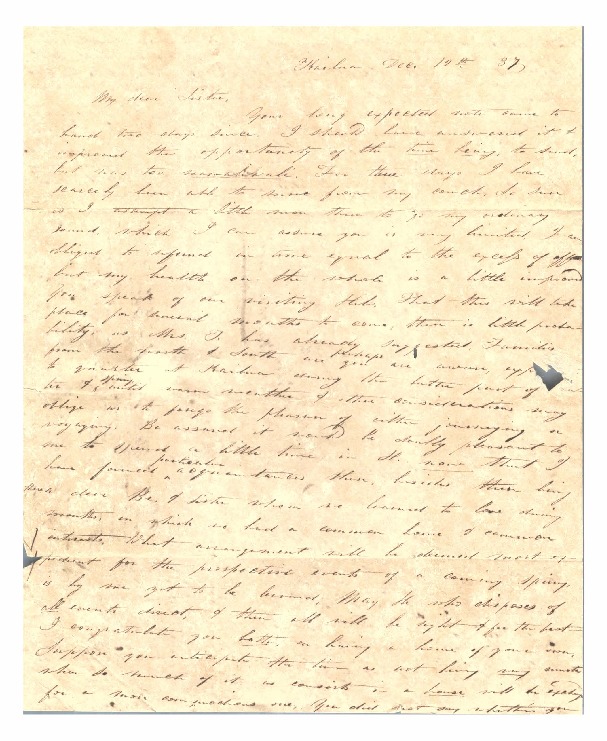 Kailua Dec. 19th 37,
My dear Sister,
Your long expected note came to
hand two days since. I should have answered it &
improved the opportunity of the time being, to send,
but was too . For three days I have
scarcely been able to move from my couch. So soon
as I attempt a little more than to go my ordinary
round which I can assure you is very limited I am
obliged to refund in time equal to the excess of
but my health on the whole is a little improved
You speak of our visiting Hilo. That this will take
place for several months to come, there is little proba-
bility, as Mrs. T. has already suggested. Families
from the north & South are perhaps you are aware,
to quarter at Kailua during the latter part of
be & until warm months & other considerations may
oblige us to forego the pleasure of either journeying or
voyaging. Be assured it would be doubly pleasant to
me to spend a little time in H. now that I
have formed particular acquaintances there, besides there being
those dear Br. & sister whom we learned to love during
months in which we had a common home & common
interests. What arrangement will be deemed most ex-
pedient for the prospective events of a coming spring
is by me yet to be learned, May He who disposes of
all events direct, & then all will be right & for the best
I congratulate you both, on having a home of your own,
Suppose you anticipate the time as not being very remote
when so much of it as consists in a house will be exchang
for a more commodious one. You did not say whether you